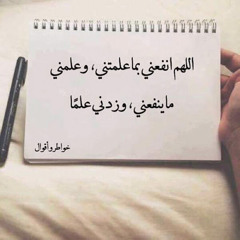 اللهم انفعني بما علمتني، وعلمني
ما ينفعني، وزدني علمًا
خواطر وأقوال